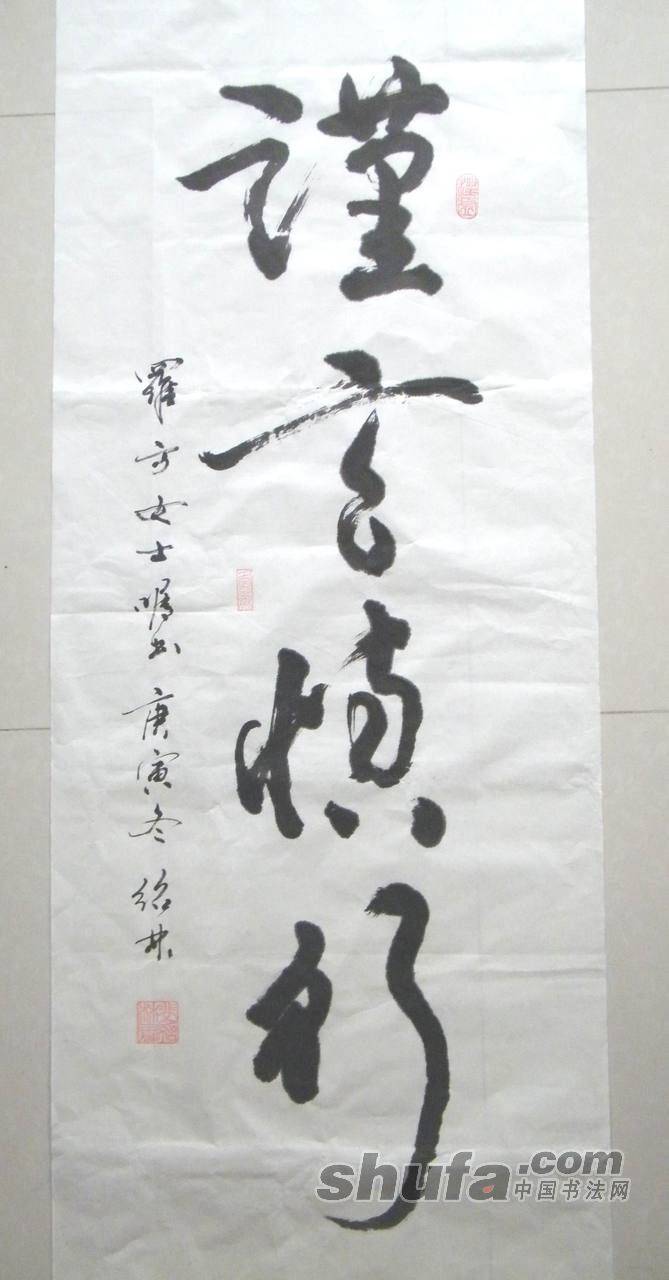 謹言慎行
羅方女士嘱书 庚寅冬 绍林
shufa.com
中国书法网